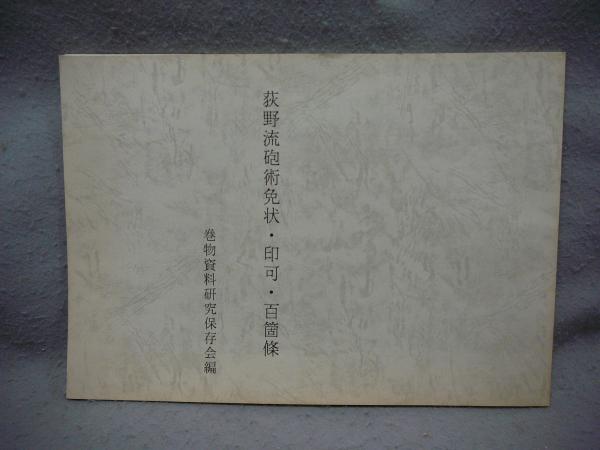 荻野流砲術免状・印可・百箇條
巻物資料研究保存会編